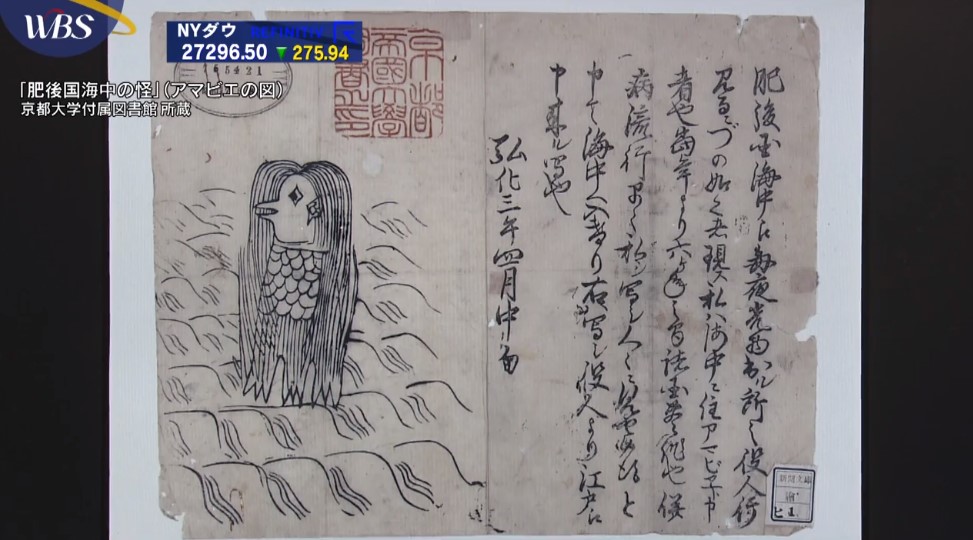 WBS
NYダウ REFINITIV
27296.50 ▼ 275.94
「肥後国海中の怪」(アマビエの図)
京都大学付属図書館 所蔵
肥後国海中え毎夜光物出ル所之役人行
見るニづの如く者現ス私ハ海中ニ住アマビヱト申
者也当年より六ヶ年之間諸国豊作也併
病流行早々私ヲ写シ人々ニ見セ候得と
申て海中へ入けり右写シ役人より江戸え
申来ル写也
弘化三年四月中旬
京都
帝國大學
圖書之印